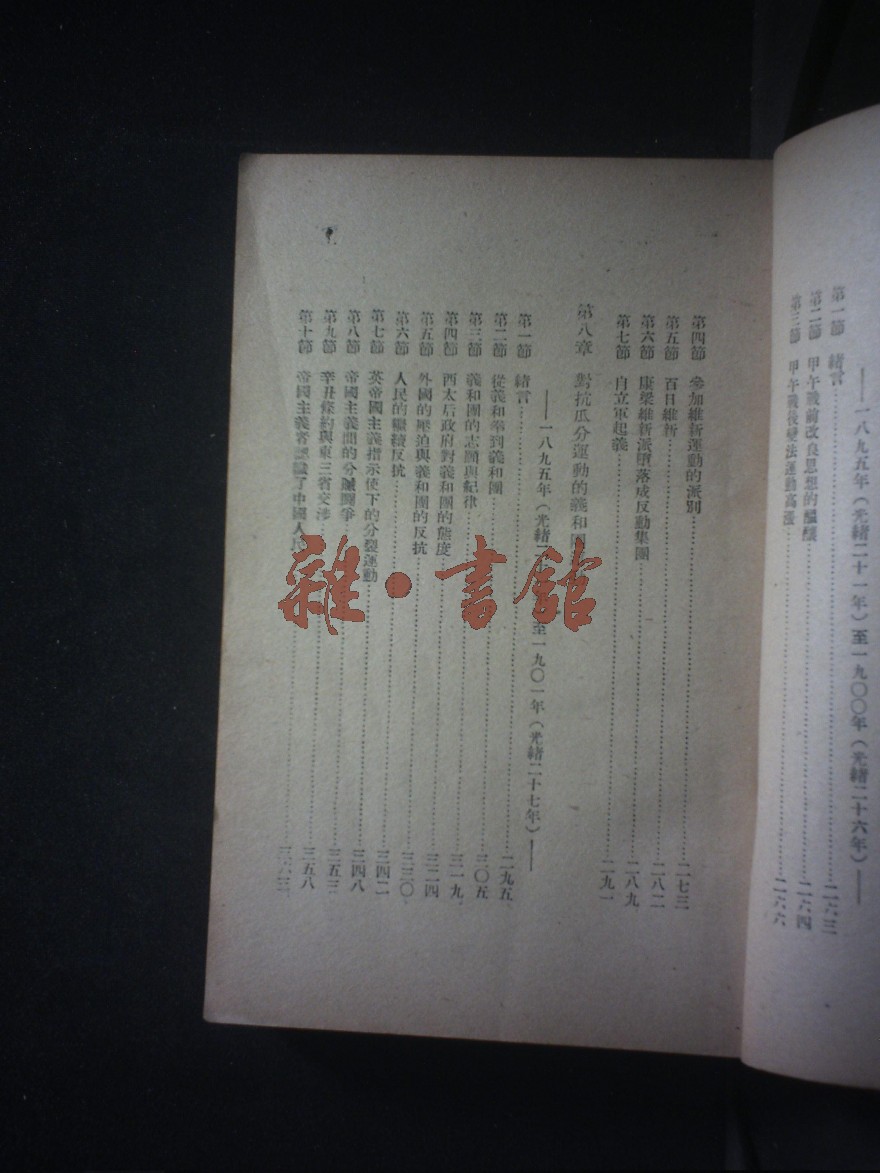 ——一八九五年（光緒二十一年）至一九〇〇年（光緒二十六年）——
第一節 緒言……二六三
第二節 甲午戰前改良思想的醞釀……二六四
第三節 甲午戰後變法運動高漲……二六六
第四節 參加維新運動的派別……二七三
第五節 百日維新……二八二
第六節 康梁維新派墮落成反動集團……二八九
第七節 自立軍起義……二九一
第八章 對抗瓜分運動的義和團
——一八九五年（光緒二十 至一九〇一年（光緒二十七年）——
第一節 緒言……二九五
第二節 從義和拳到義和團……三〇五
第三節 義和團的志願與紀律……三一九
第四節 西太后政府對義和團的態度……三二四
第五節 外國的壓迫與義和團的反抗……三三〇
第六節 人民的繼續反抗……三四二
第七節 英帝國主義指示使下的分裂運動……三四八
第八節 帝國主義間的分贓鬪爭……三五三
第九節 辛丑條約與東三省交涉……三五八
第十節 帝國主義者認識了中國人民……三六三
雜·書館